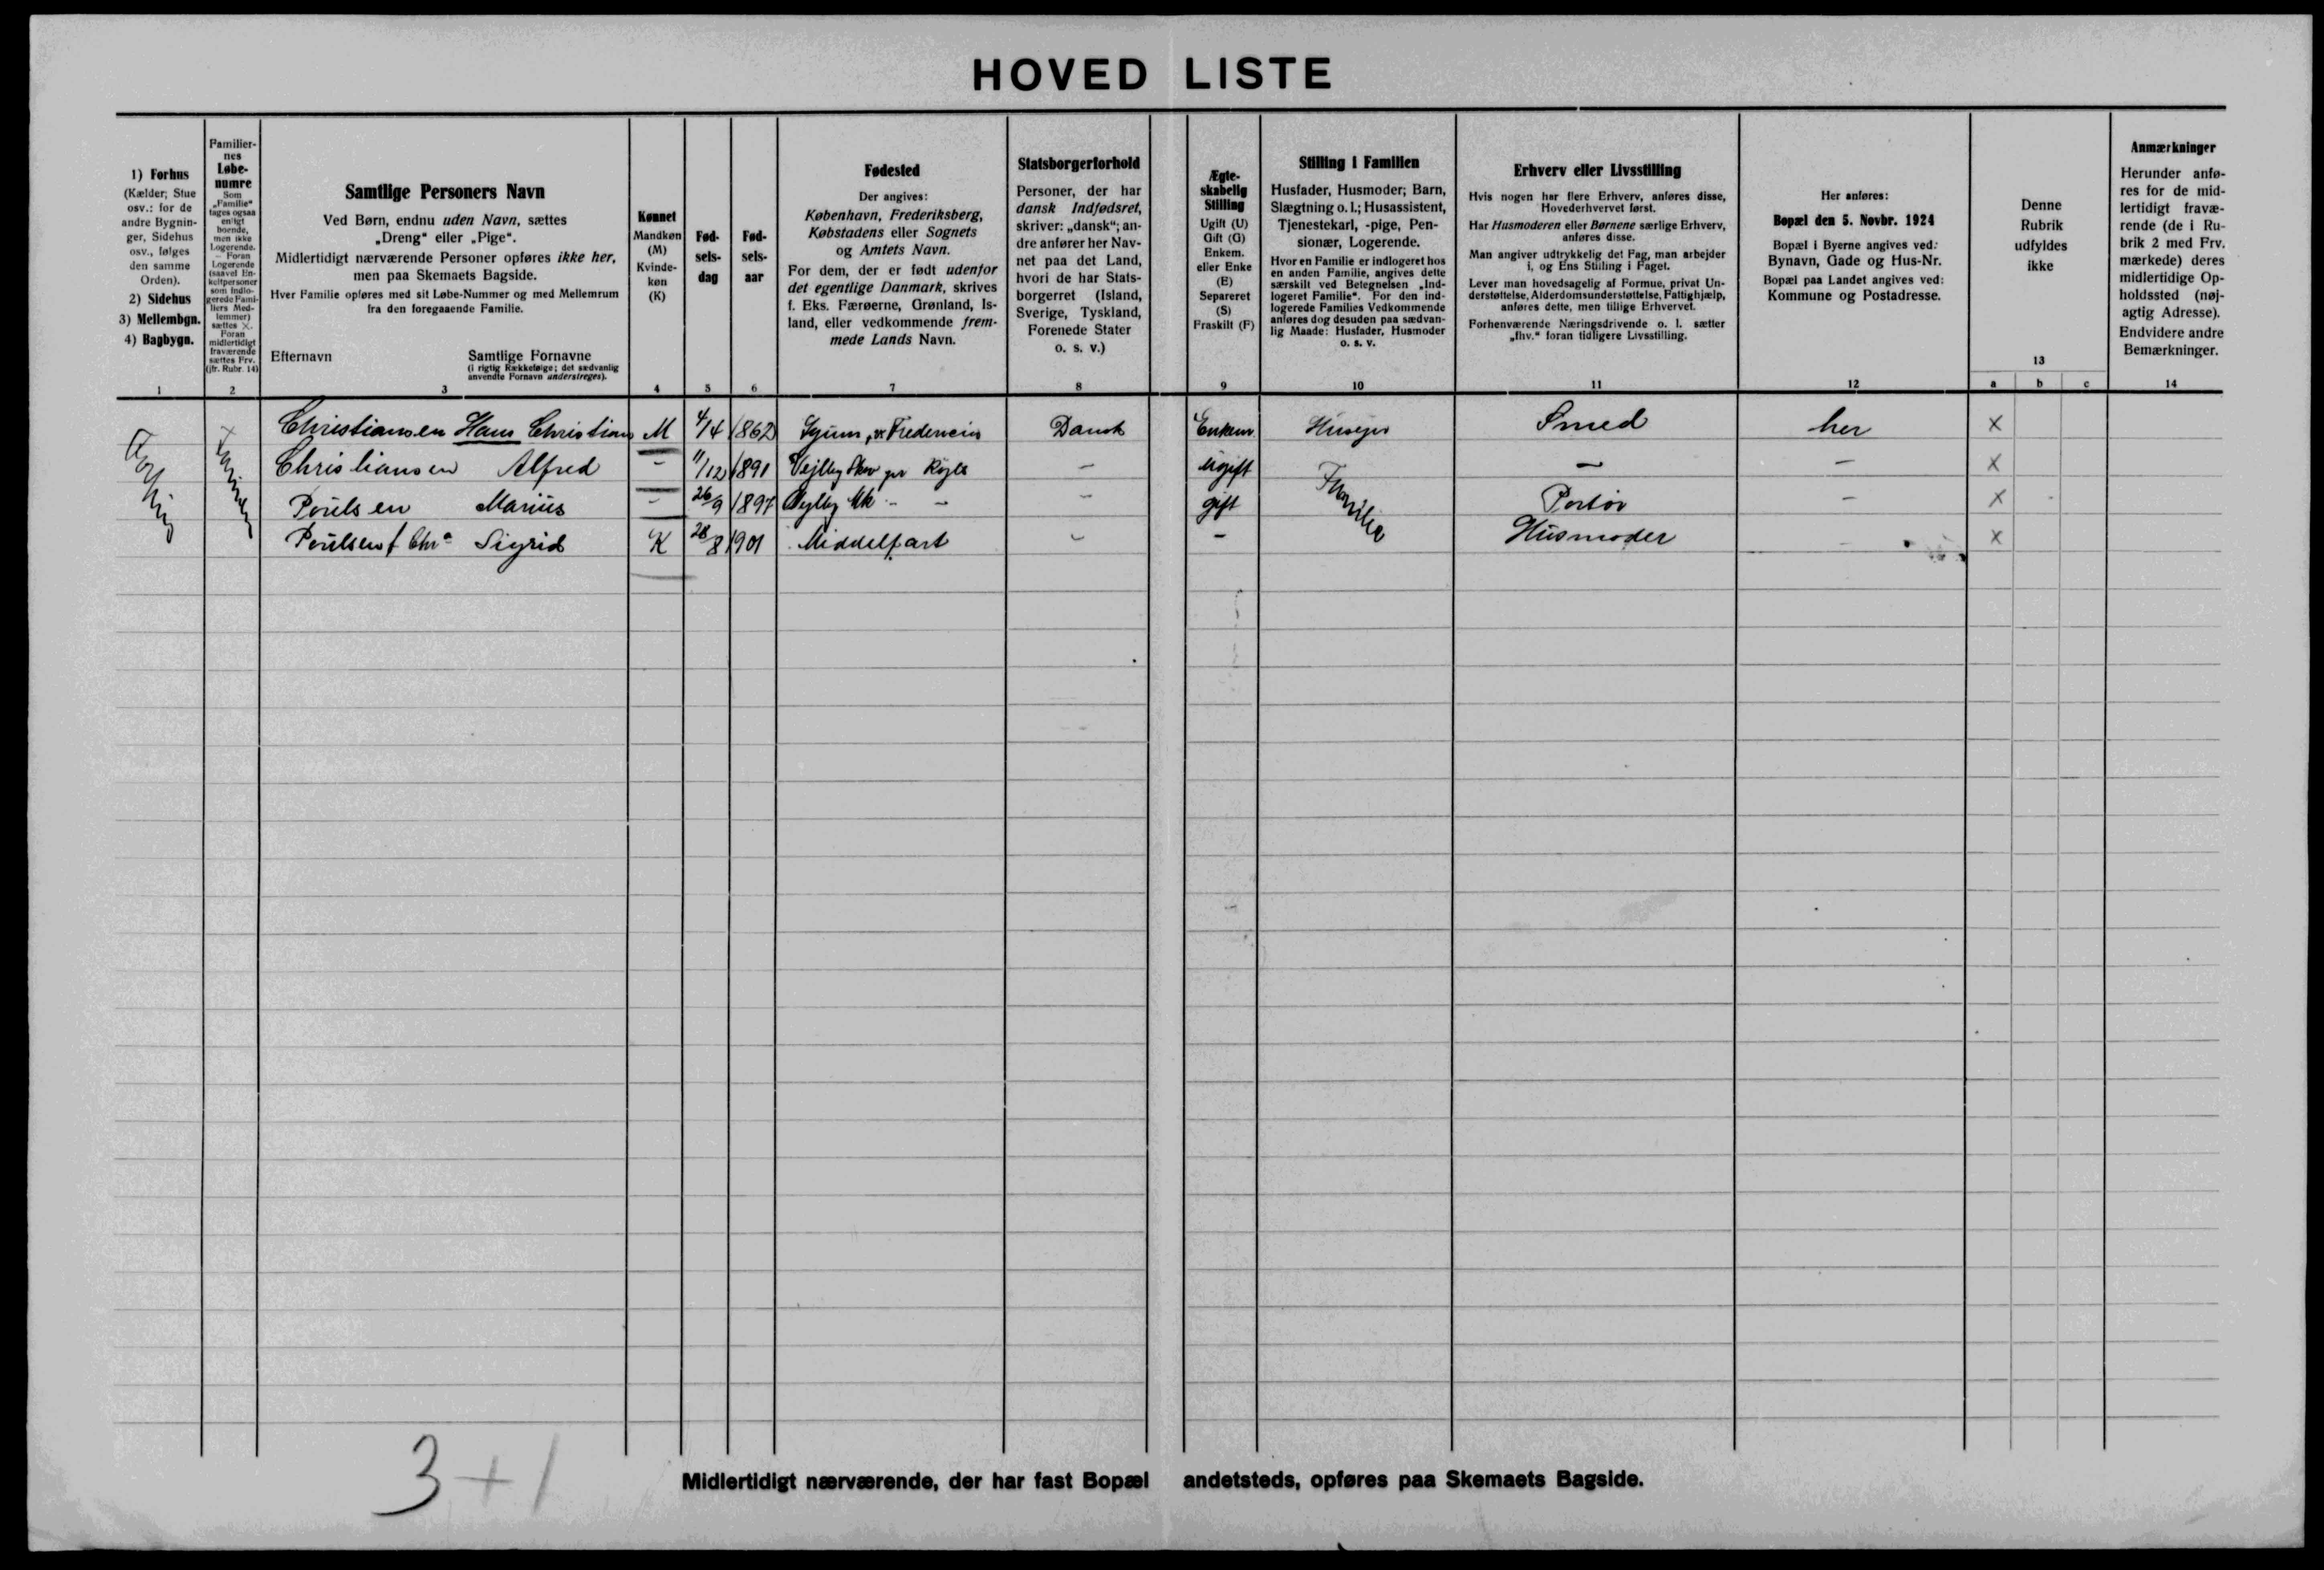 HOVED LISTE
1) Forhus
(Kælder; Stue
osv.: for de
andre Bygnin-
ger, Sidehus
osv., følges
den samme
Orden).
2) Sidehus
3) Mellembgn.
4) Bagbygn.
1
Familier-
nes
Løbe-
numre
Som
„Familie“
tages ogsaa
enligt
boende,
men ikke
Logerende.
— Foran
Logerende
(saavel En-
keltpersoner
som indlo-
gerede Fami-
liers Med-
lemmer)
sættes X.
Foran
midlertidigt
fraværende
sættes Frv.
(jfr. Rubr. 14)
2
Samtlige Personers Navn
Ved Børn, endnu uden Navn, sættes
„Dreng“ eller „Pige“.
Midlertidigt nærværende Personer opføres ikke her,
men paa Skemaets Bagside.
Hver Familie opføres med sit Løbe-Nummer og med Mellemrum
fra den foregaaende Familie.
Efternavn Samtlige Fornavne
(i rigtig Rækkefølge; det sædvanlig
anvendte Fornavn understreges).
3
Kønnet
Mandkøn
(M)
Kvinde-
køn
(K)
4
Fød-
sels-
dag
5
Fød-
sels-
aar
6
Fødested
Der angives:
København, Frederiksberg,
Købstadens eller Sognets
og Amtets Navn.
For dem, der er født udenfor
det egentlige Danmark, skrives
f. Eks. Færøerne, Grønland, Is-
land, eller vedkommende frem-
mede Lands Navn.
7
Statsborgerforhold
Personer, der har
dansk Indfødsret,
skriver: „dansk“; an-
dre anfører her Nav-
net paa det Land,
hvori de har Stats-
borgerret (Island,
Sverige, Tyskland,
Forenede Stater
o. s. v.)
8
Ægte-
skabelig
Stilling
Ugift (U)
Gift (G)
Enkem.
eller Enke
(E)
Separeret
(S)
Fraskilt (F)
9
Stilling i Familien
Husfader, Husmoder; Barn,
Slægtning o. l.; Husassistent,
Tjenestekarl, -pige, Pen-
sionær, Logerende.
Hvor en Familie er indlogeret hos
en anden Familie, angives dette
særskilt ved Betegnelsen „Ind-
logeret Familie“. For den ind-
logerede Families Vedkommende
anføres dog desuden paa sædvan-
lig Maade: Husfader, Husmoder
o. s. v.
10
Erhverv eller Livsstilling
Hvis nogen har flere Erhverv, anføres disse,
Hovederhvervet først.
Har Husmoderen eller Børnene særlige Erhverv,
anføres disse.
Man angiver udtrykkelig det Fag, man arbejder
i, og Ens Stilling i Faget.
Lever man hovedsagelig af Formue, privat Un-
derstøttelse, Alderdomsunderstøttelse, Fattighjælp,
anføres dette, men tillige Erhvervet.
Forhenværende Næringsdrivende o. l. sætter
„fhv.“ foran tidligere Livsstilling.
11
Her anføres:
Bopæl den 5. Novbr. 1924
Bopæl i Byerne angives ved:
Bynavn, Gade og Hus-Nr.
Bopæl paa Landet angives ved:
Kommune og Postadresse.
12
Denne
Rubrik
udfyldes
ikke
13
a b c
Anmærkninger
Herunder anfø-
res for de mid-
lertidigt fravæ-
rende (de i Ru-
brik 2 med Frv.
mærkede) deres
midlertidige Op-
holdssted (nøj-
agtig Adresse).
Endvidere andre
Bemærkninger.
14
Christiansen Hans Christian M 4/4 1862 Fredericia Dansk Enkem Husejer Smed her X
Christiansen Alfred — 11/12 1891 Vejlby Skov pr Røjle — Ugift — — X
Poulsen Marius — 26/9 1897 Vejlby — — — gift Familie Portør — X
Poulsen f Chr Sigrid K 28/8 1901 Middelfart — — Husmoder X
3 + 1
Midlertidigt nærværende, der har fast Bopæl andetsteds, opføres paa Skemaets Bagside.